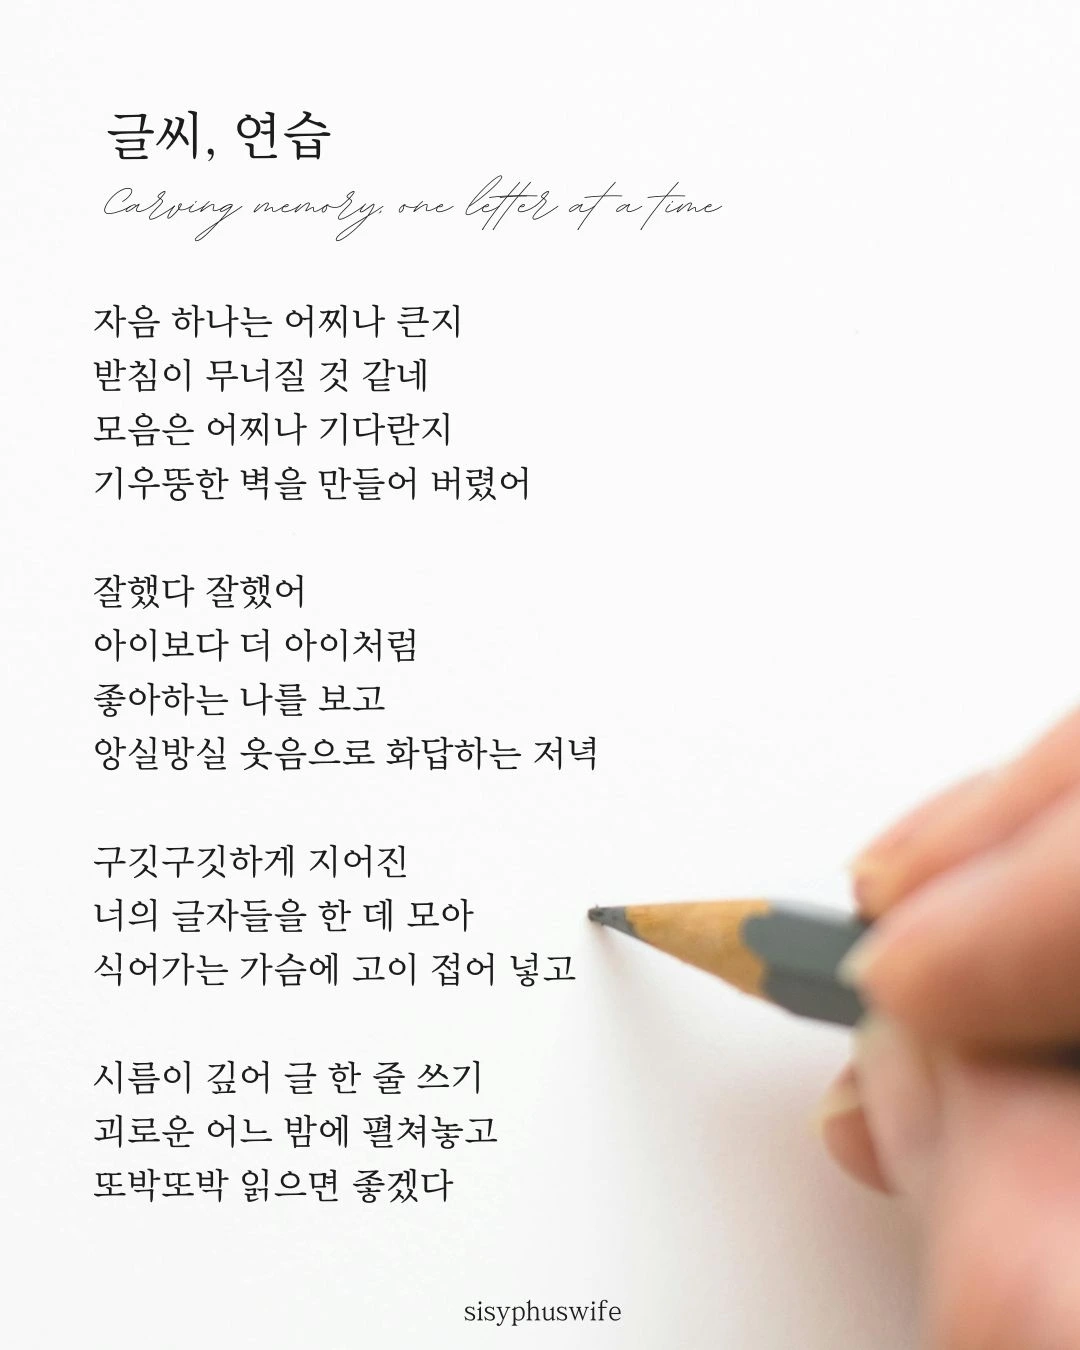 글씨, 연습
Carving memory, one letter at a time
자음 하나는 어찌나 큰지
받침이 무너질 것 같네
모음은 어찌나 기다란지
기우뚱한 벽을 만들어 버렸어
잘했다 잘했어
아이보다 더 아이처럼
좋아하는 나를 보고
앙실방실 웃음으로 화답하는 저녁
구깃구깃하게 지어진
너의 글자들을 한 데 모아
식어가는 가슴에 고이 접어 넣고
시름이 깊어 글 한 줄 쓰기
괴로운 어느 밤에 펼쳐놓고
또박또박 읽으면 좋겠다
sisyphuswife